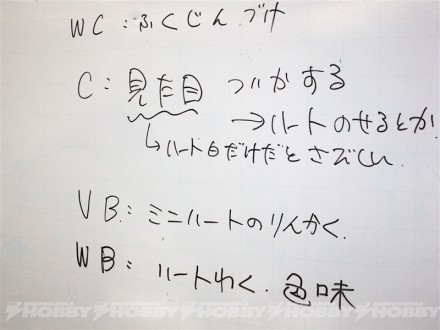 WC：ふくじんづけ
C：見た目 ついかする
→ハートのせるとか
↳ハート白だけだとさびしい
VB：ミニハートのりんかく.
WB：ハートわく. 色味
HOBBY HOBBY HOBBY HOBBY HOBBY